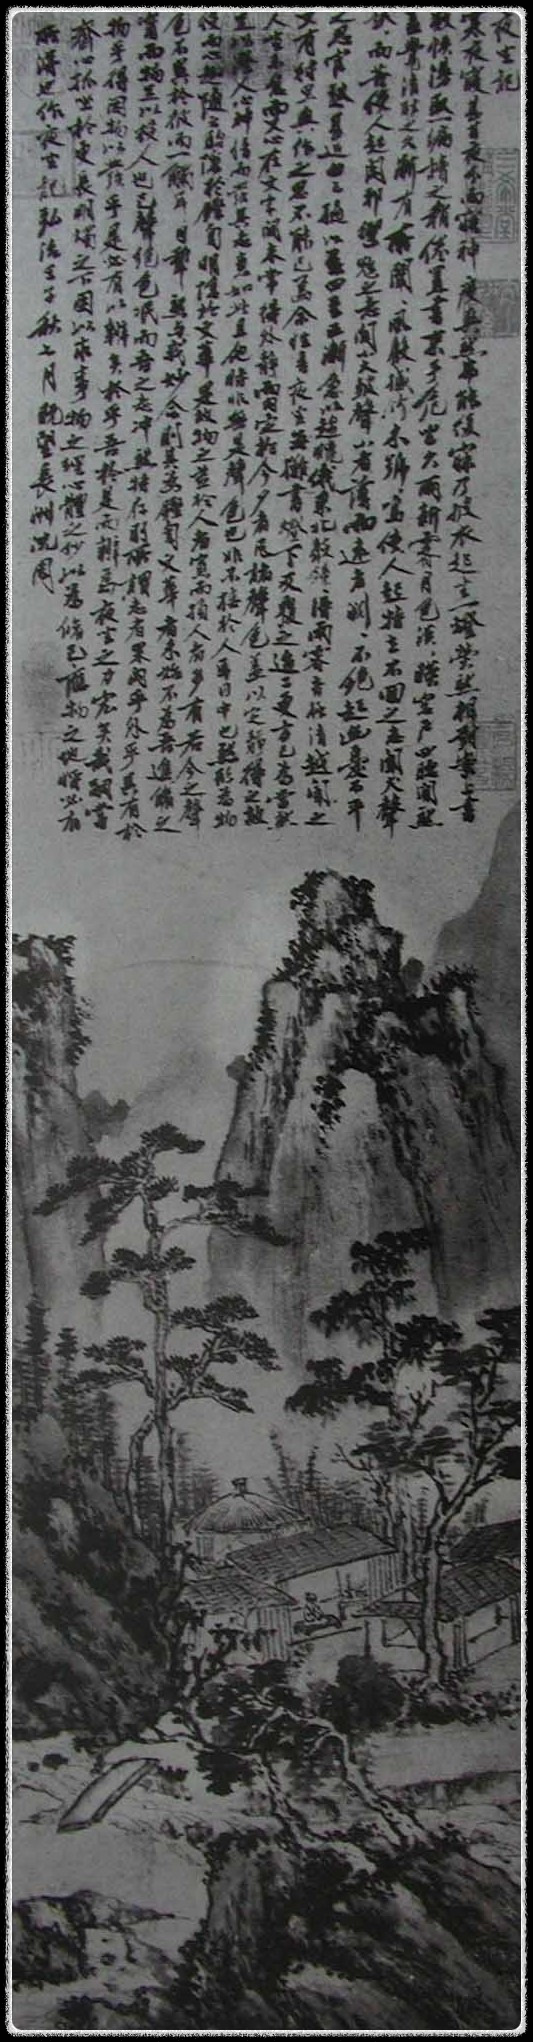 夜坐記
寒夜寢甚甘夜分而寤神度爽然弗能復寐乃披衣起坐一燈熒然相對案上書
數帙漫取一編讀之稍倦置書束手危坐久雨新霽月色淡淡映窗戶四聽闃然
蓋覺清耿之久漸有所聞聞風聲撼竹木號號鳴使人起特立不回之志聞犬聲
狺狺而苦使人起閑邪禦寇之志聞小大鼓聲小者薄而遠者淵淵不絕起幽憂不平
之思官鼓甚近由三撾以至四至五漸急以趨曉俄東北聲鐘鐘得雨霽音極清越聞之
又有待旦興作之思不能已焉余性喜夜坐每攤書燈下反覆之迨二更方已為當然
人喧未息而又心在文字間未嘗得外靜而內定於今夕者凡諸聲色蓋以定靜得之故
足以澄人心神情而發其志意如此且他時非無是聲色也非不接於人耳目中也然形為物
役而心趣隨之聰隱於鏗訇明隱於文華是故物之益於人者寡而損人者多有若今之聲
色不異於彼而一觸耳目犁然與我妙合則其為鏗訇文華者未始不為吾進修之
資而物足以役人也已聲絕色泯而吾之志沖然特存則所謂志者果內乎外乎其有於
物乎得因物以發乎是必有以辨矣於乎吾於是而辨焉夜坐之力宏矣哉嗣當
齋心孤坐於更長明燭之下因以求事物之理心體之妙以為修己應物之地將必有
所得也作夜坐記弘治壬子秋七月既望長洲沈周